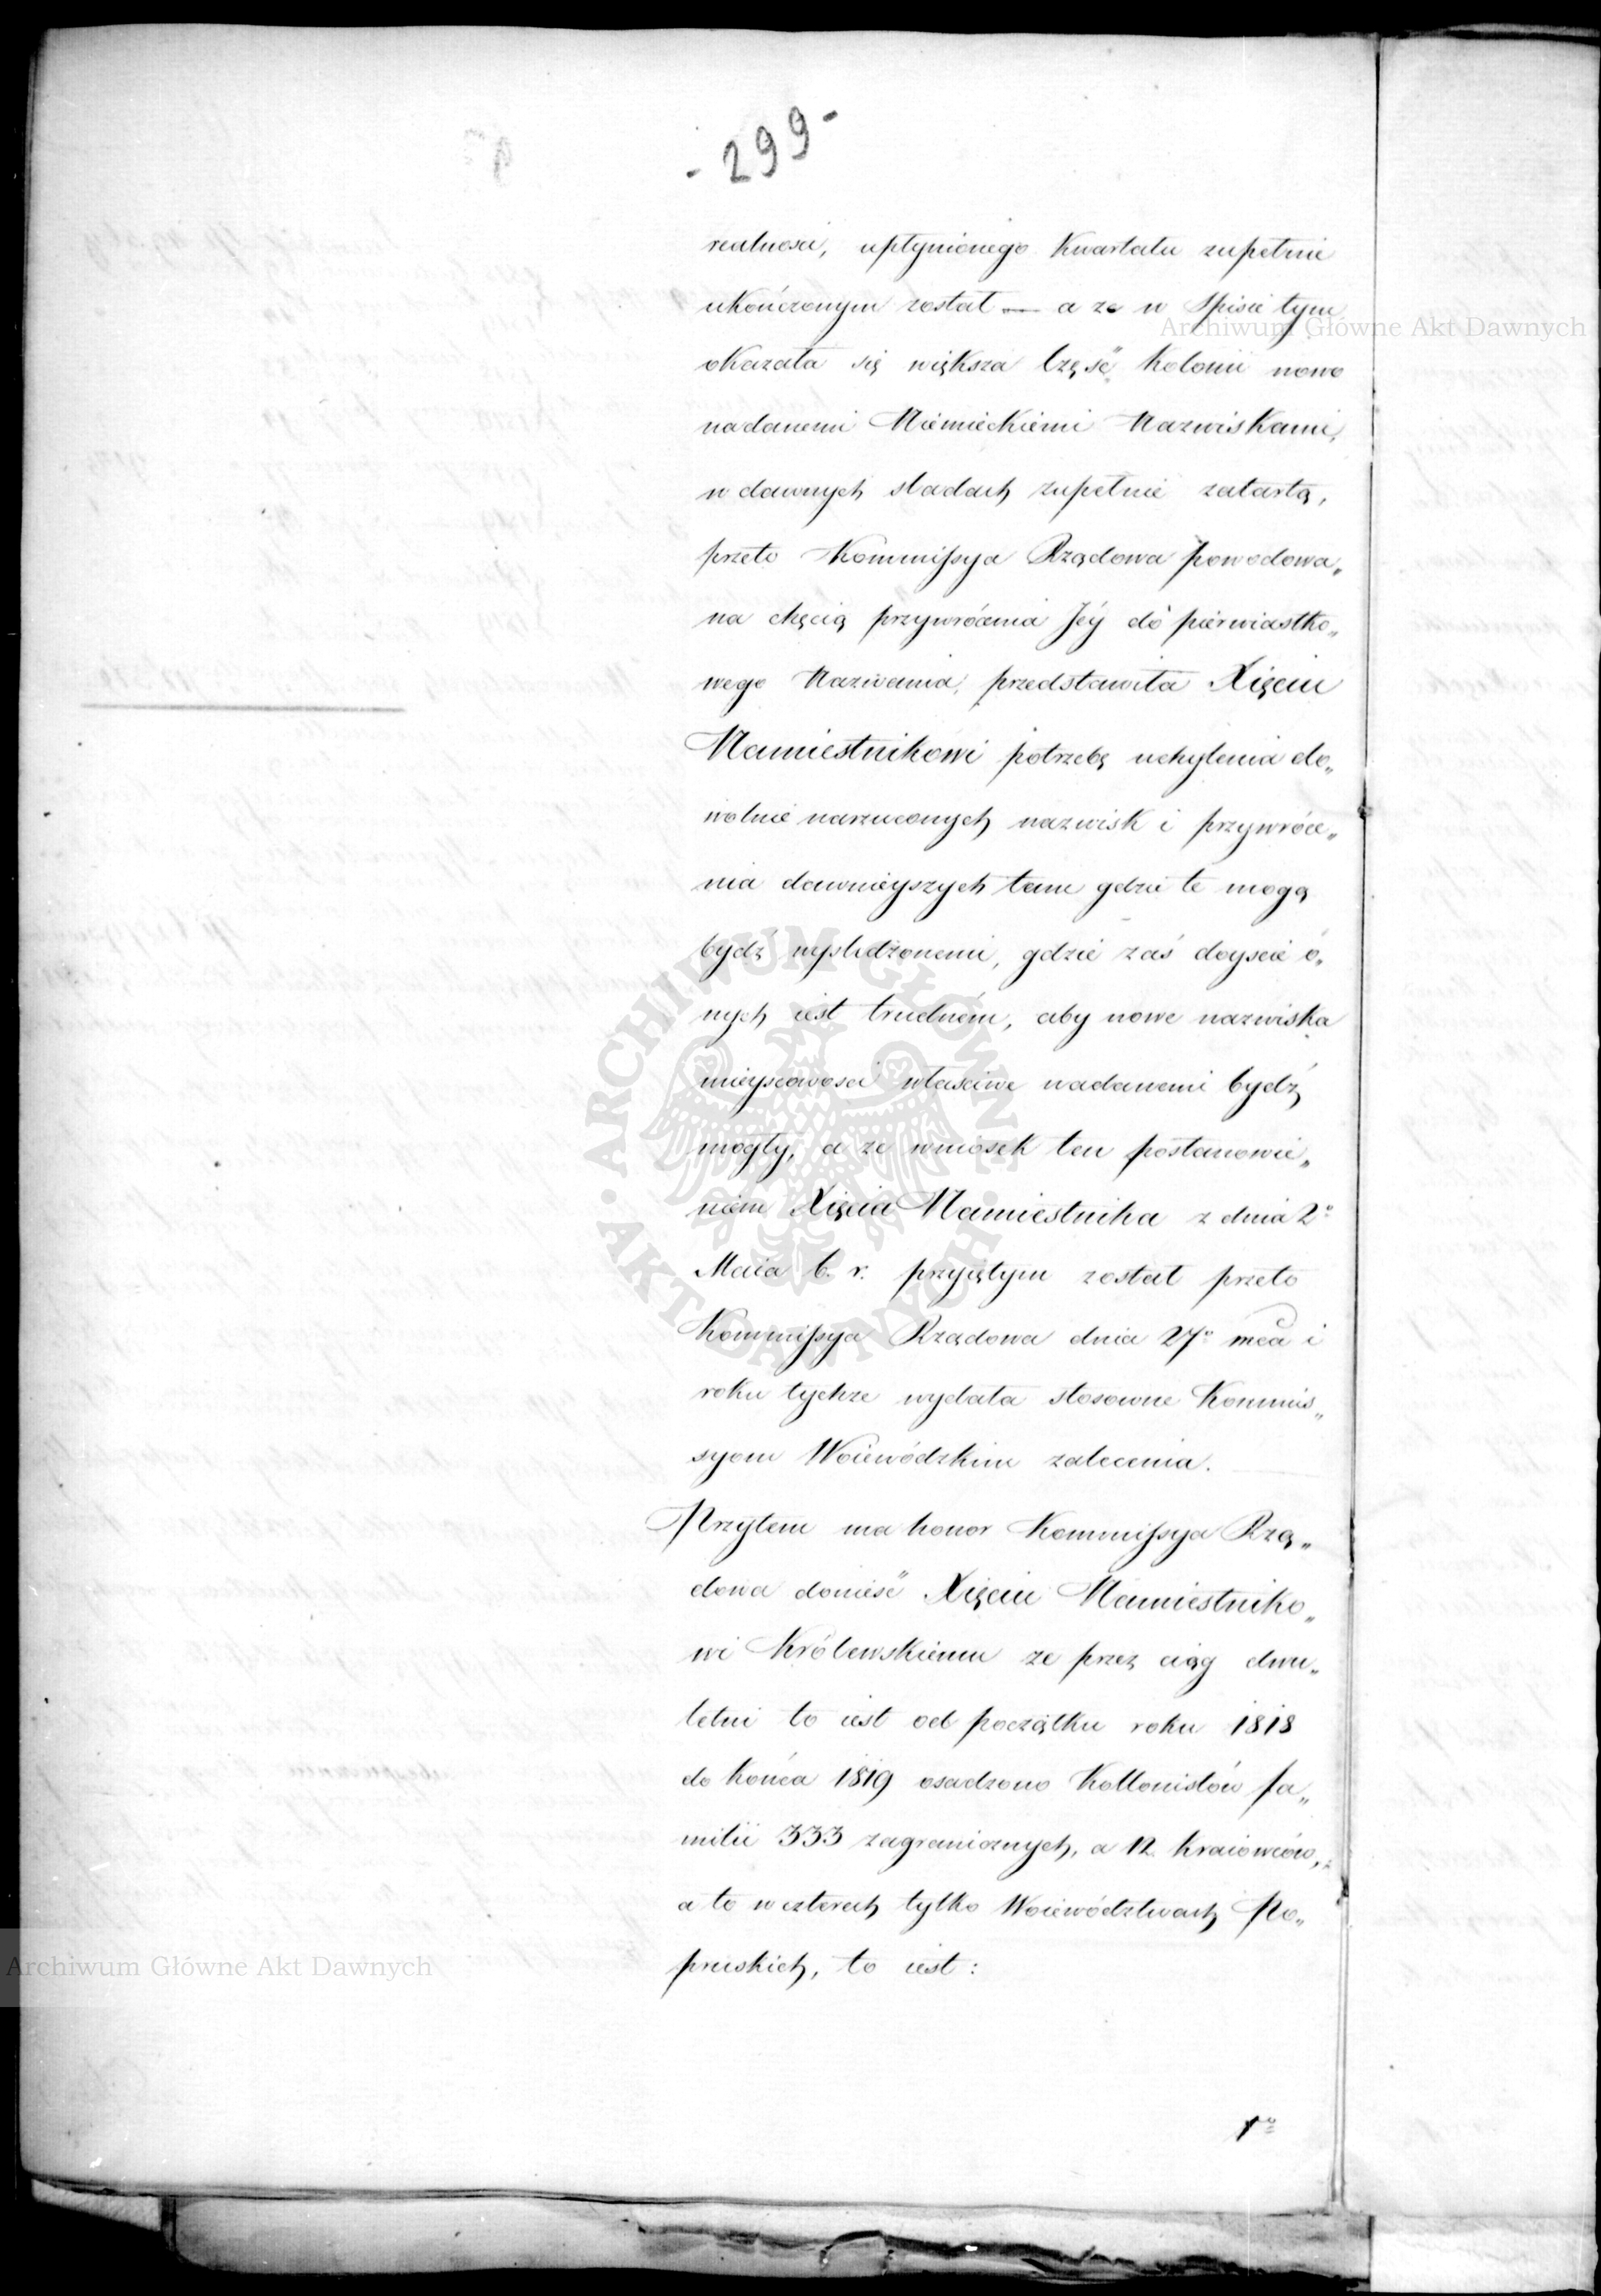 - 299 -
realnosci, upłynionego Kwartału zupełnie
ukończonym został — a ze w Spisie tym
okazała się większa Część Kolonii nowo
nadanemi Niemieckiemi Nazwiskami,
w dawnych sladach zupełnie zatartą,
przeto Kommissya Rządowa powodowa„
na chęcią przywrócenia Jéy do pierwiastko„
wego Nazwania, przedstawiła Xięciu
Namiestnikowi potrzebę uchylenia do„
wolnie narzuconych nazwisk i przywróce„
nia dawnieyszych tam gdzie te mogą
bydź wysledzonemi, gdzie zaś doyscie o„
nych iest trudném, aby nowe nazwiska
mieyscowosci własciwe nadanemi bydź
mogły, a ze wniosek ten postanowie„
niem Xięcia Namiestnika z dnia 2º
Maia b. r. przyiętym został przeto
Kommissya Rządowa dnia 27º mca i
roku tychze wydała stosowne Kommis„
syom Woiewódzkim zalecenia.
Przytem ma honor Kommissya Rzą„
dowa donieść Xięciu Namiestniko„
wi Królewskiemu ze przez ciąg dwu„
letni to iest od początku roku 1818
do końca 1819 osadzono Kollonistów fa„
milii 333 zagranicznych, a 12 kraiowców,
a to w czterech tylko Woiewództwach Po„
pruskich, to iest:
1º
Archiwum Główne Akt Dawnych
Archiwum Główne Akt Dawnych
ARCHIWUM GŁÓWNE • AKT DAWNYCH •